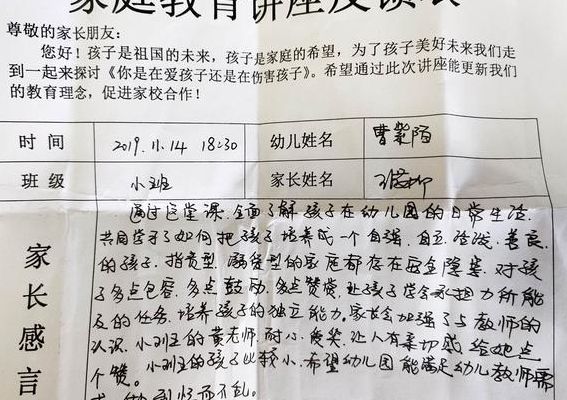 家庭教育讲座反馈表
尊敬的家长朋友:
您好!孩子是祖国的未来,孩子是家庭的希望,为了孩子美好未来我们走
到一起来探讨《你是在爱孩子还是在伤害孩子》。希望通过此次讲座能更新我们
的教育理念,促进家校合作!
时 间 2019.11.14 18:30 幼儿姓名 曹
班 级 小班 家长姓名
家长感言
通过这堂课.全面了解孩子在幼儿园的日常生活.
共同学习了如何把孩子培养成一个自强、自立、活泼、善良
的孩子.指责型、溺爱型的家庭都存在安全隐患.对孩
子多点包容.多点鼓励.多点赞赏.让孩子学会承担力所能
及的任务.培养孩子的独立能力.家长会加强了与教师的
认识.小班的黄老师.耐心.爱笑.让人有亲切感.给她点
个赞。小班的孩子比较小.希望幼儿园能满足幼儿教师需
求